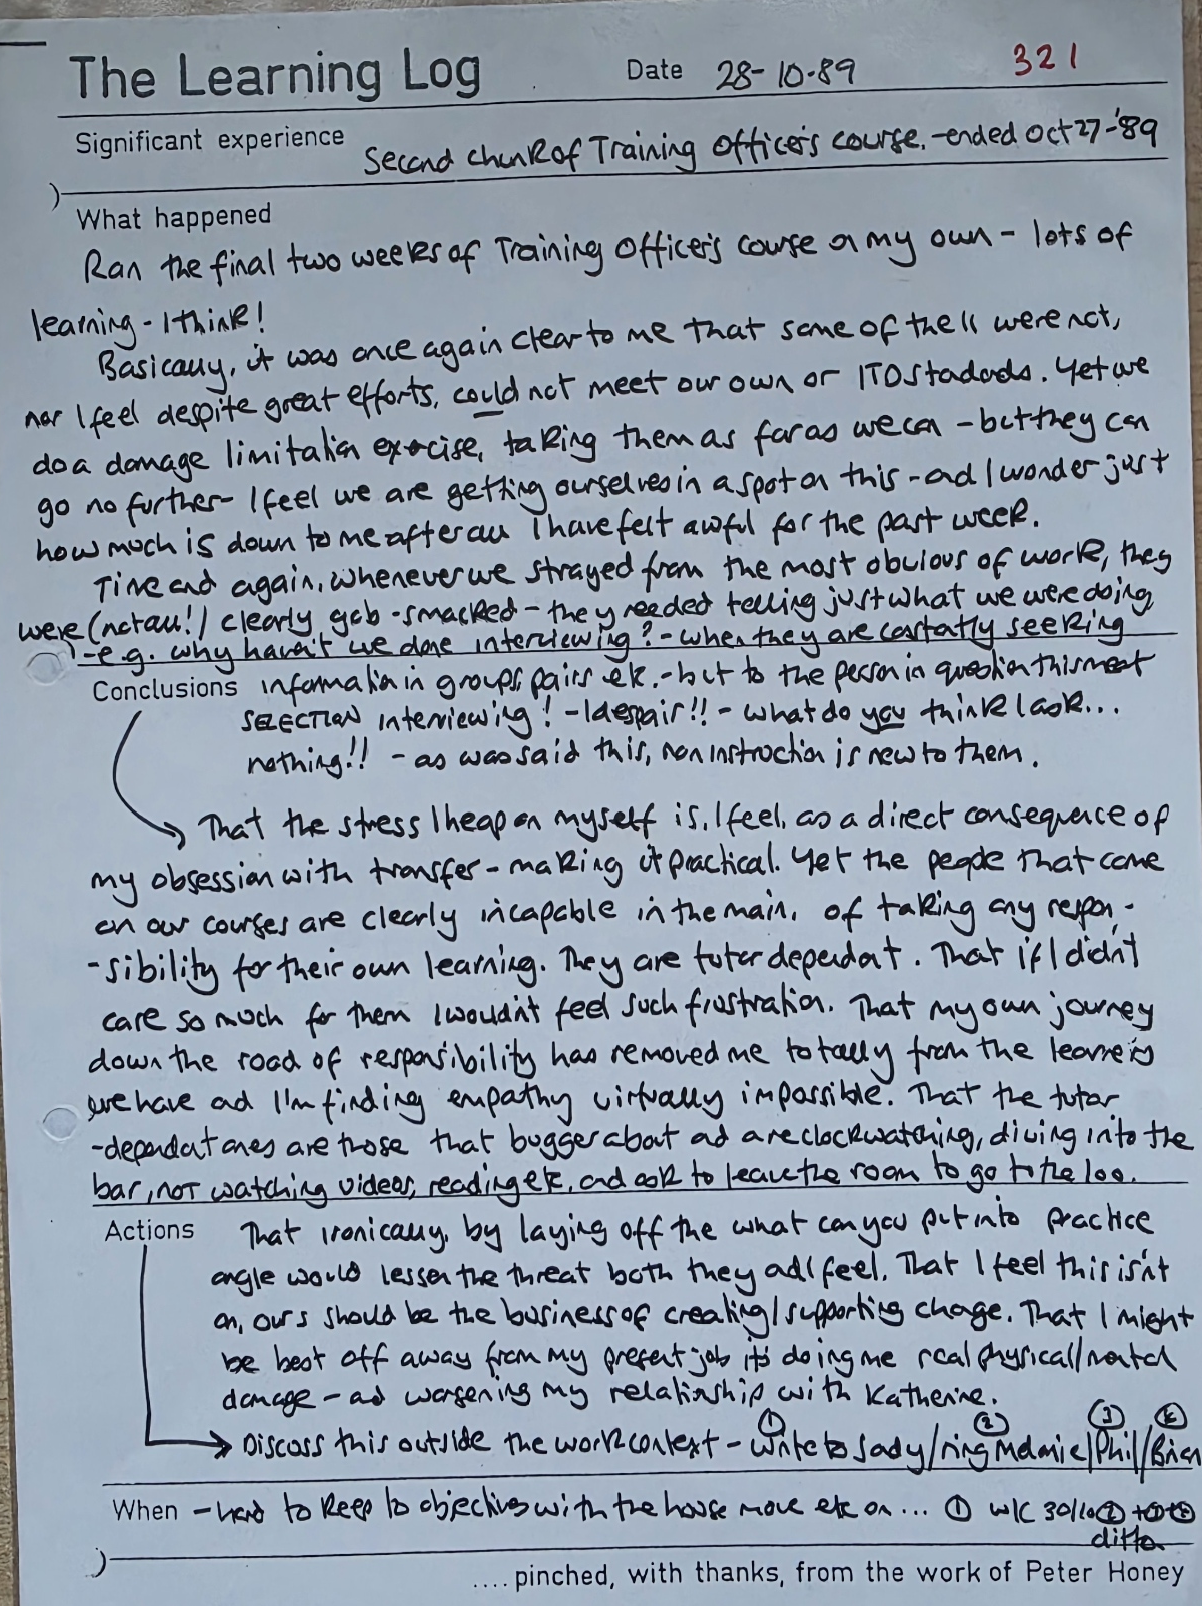 The Learning Log Date 28-10-89 321
Significant experience Second chunk of Training Officer's course. -ended Oct 27-'89
What happened
Ran the final two weeks of Training Officer's course on my own - lots of
learning - I think!
Basically, it was once again clear to me that some of the 11 were not,
nor I feel despite great efforts, could not meet our own or ITO Stadads. Yet we
do a damage limitation exercise, taking them as far as we can - but they can
go no further - I feel we are getting ourselves in a spot on this - and I wonder just
how much is down to me after all I have felt awful for the past week.
Time and again, whenever we strayed from the most obvious of work, they
were (not all!) clearly gob-smacked - they needed telling just what we were doing
-e.g. why haven't we done interviewing? - when they are constantly seeking
Conclusions information in groups pairs etc. - but to the person in question this meant
SELECTION interviewing! - I despair!! - what do you think I ask...
nothing!! - as was said this, non instruction is new to them.
That the stress I heap on myself is, I feel, as a direct consequence of
my obsession with transfer - making it practical. Yet the people that come
on our courses are clearly incapable in the main, of taking any respon-
-sibility for their own learning. They are tutor dependant. That if I didn't
care so much for them I wouldn't feel such frustration. That my own journey
down the road of responsibility has removed me totally from the learners
we have and I'm finding empathy virtually impossible. That the tutor
-dependant ones are those that bugger about and are clockwatching, diving into the
bar, not watching videos, reading etc, and ask to leave the room to go to the loo.
Actions That ironically, by laying off the what can you put into practice
angle would lessen the threat both they and I feel. That I feel this isn't
on, ours should be the business of creating/supporting change. That I might
be best off away from my present job it's doing me real physical/mental
damage - and worsening my relationship with Katherine.
① ② ③ ④
Discuss this outside the work context - write to Sady/ring Melanie/Phil/Brian
When - hard to keep to objectives with the house move etc on... ① w/c 30/10 ②
ditto
.... pinched, with thanks, from the work of Peter Honey